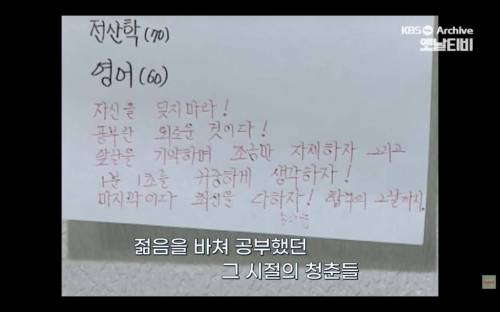 KBS Archive
옛날티비
전산학(70)
영어(60)
자신을 잊지마라!
공부란 외로운 것이다!
앞날을 기약하며 조금만 자제하자 그리고
1분 1초를 귀중하게 생각하자!
마지막이다 최선을 다하자! 합격의 그날까지.
젊음을 바쳐 공부했던
그 시절의 청춘들